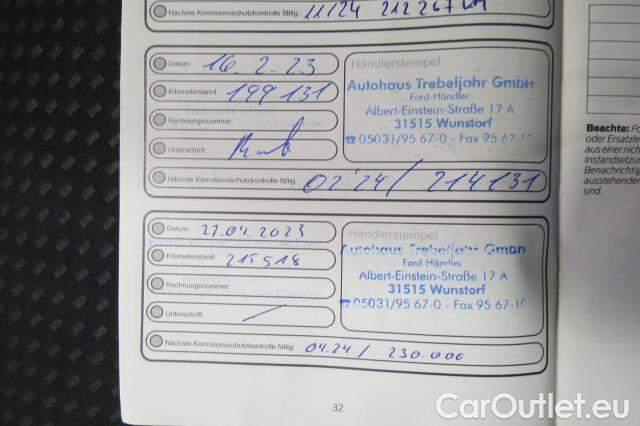 Nächste Korrosionsschutzkontrolle fällig: 11/24 212 267 KM
Datum: 16.2.23
Händlerstempel
Kilometerstand: 199 131
Autohaus Trebeljahr GmbH
Ford-Händler
Albert-Einstein-Straße 17 A
31515 Wunstorf
☎ 05031/95 67-0 - Fax 95 67-10
Rechnungsnummer:
Unterschrift:
Nächste Korrosionsschutzkontrolle fällig: 02'24 / 214131
Datum: 27.04.2023
Händlerstempel
Kilometerstand: 215918
Autohaus Trebeljahr GmbH
Ford-Händler
Albert-Einstein-Straße 17 A
31515 Wunstorf
☎ 05031/95 67-0 - Fax 95 67-10
Rechnungsnummer:
Unterschrift: /
Nächste Korrosionsschutzkontrolle fällig: 04.24 / 230.000
32
Beachte:
oder Ersatzle
aus einer nich
Instandsetzu
Benachrichtig
ausstehender
sind.
CarOutlet.eu